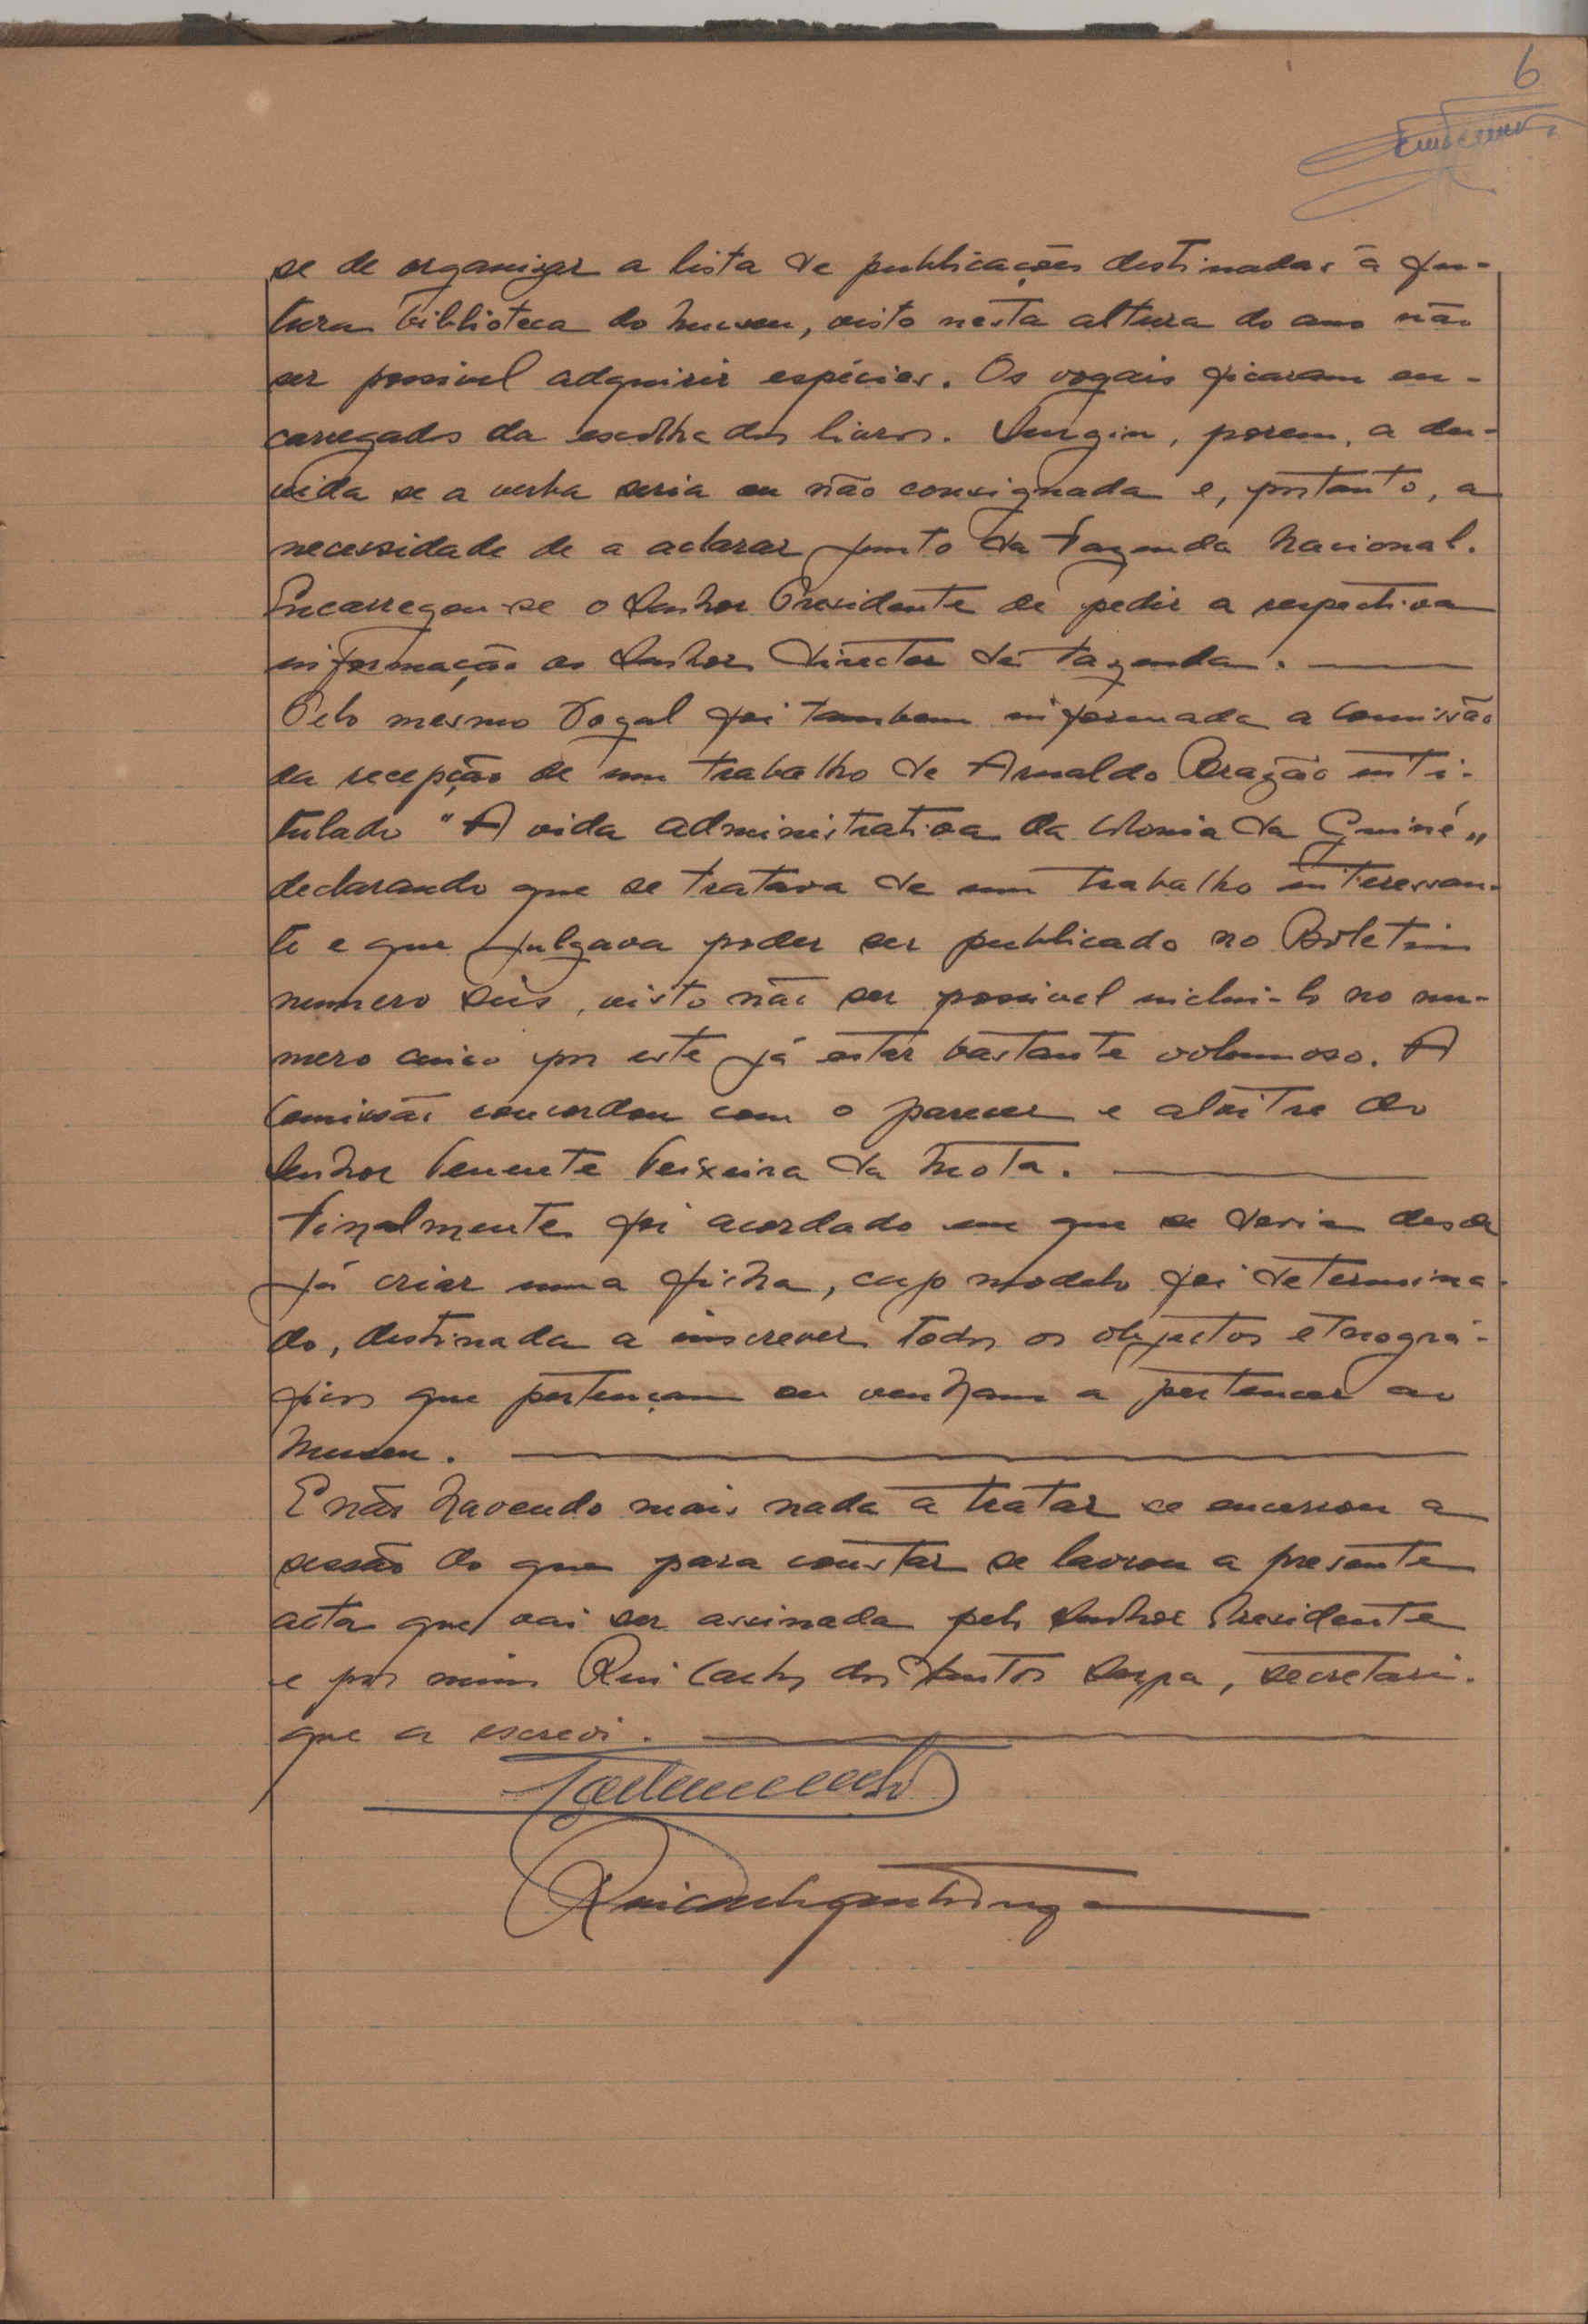 6
se de organizar a lista de publicações destinadas à fu-
tura biblioteca do Museu, visto nesta altura do ano não
ser possivel adquirir espécies. Os vogais ficaram en-
carregados da escolha dos livros. Surgiu, porem, a du-
vida se a verba seria ou não consignada e, portanto, a
necessidade de a aclarar junto da Fazenda Nacional.
Encarregou-se o Senhor Presidente de pedir a respectiva
informação ao Senhor Director de Fazenda.
Pelo mesmo Vogal foi tambem informada a Comissão
da recepção de um trabalho de Arnaldo Brazão inti-
tulado "A vida administrativa da Colonia da Guiné"
declarando que se tratava de um trabalho interessan-
te e que julgava poder ser publicado no Boletim
numero seis, visto não ser possivel inclui-lo no nu-
mero cinco por este já estar bastante volumoso. A
Comissão concordou com o parecer e alvitre do
Senhor Tenente Teixeira da Mota.
Finalmente foi acordado em que se devia desde
já criar uma ficha, cujo modelo foi determina-
do, destinada a inscrever todos os objectos etnográ-
ficos que pertençam ou venham a pertencer ao
Museu.
E não havendo mais nada a tratar se encerrou a
sessão do que para constar se lavrou a presente
acta que vai ser assinada pelo Senhor Presidente
e por mim Rui Carlos dos Santos Serpa, secretario
que a escrevi.